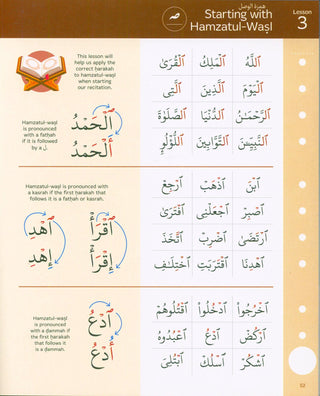 همزة الوصل
Starting with
Hamzatul-Waṣl
Lesson
3
This lesson will
help us apply the
correct ḥarakah
to hamzatul-waṣl
when starting
our recitation.
ٱللَّهُ ٱلْمَلِكُ ٱلْقُرَىٰ
ٱلْيَوْمَ ٱلَّذِينَ ٱلَّتِى
ٱلرَّحْمَـٰنُ ٱلدُّنْيَا ٱلصَّلَوٰةَ
ٱلنَّبِيِّـنَ ٱلتَّوَّٰبِينَ ٱللُّؤْلُؤُ
Hamzatul-waṣl
is pronounced
with a fatḥah
if it is followed
by a ل.
ٱلْحَمْدُ
أَلْحَمْدُ
Hamzatul-waṣl is pronounced with
a kasrah if the first ḥarakah that
follows it is a fatḥah or kasrah.
ٱقْرَأْ ٱهْدِ
إِقْرَأْ إِهْدِ
ٱبْنَ ٱذْهَبْ ٱرْجِعْ
ٱصْبِرْ ٱجْعَلْنِى ٱفْتَرَىٰ
ٱرْتَضَىٰ ٱضْرِبْ ٱتَّخَذَ
ٱهْدِنَا ٱقْتَرَبَتِ ٱخْتِلَـٰفِ
Hamzatul-waṣl
is pronounced
with a ḍammah if
the first ḥarakah
that follows it
is a ḍammah.
ٱدْعُ
أُدْعُ
ٱخْرُجُوا۟ ٱدْخُلُوا۟ ٱقْتُلُوهُمْ
ٱرْكُضْ ٱدْعُ ٱعْبُدُوهُ
ٱشْكُرْ ٱسْلُكْ ٱبْتُلِىَ
52